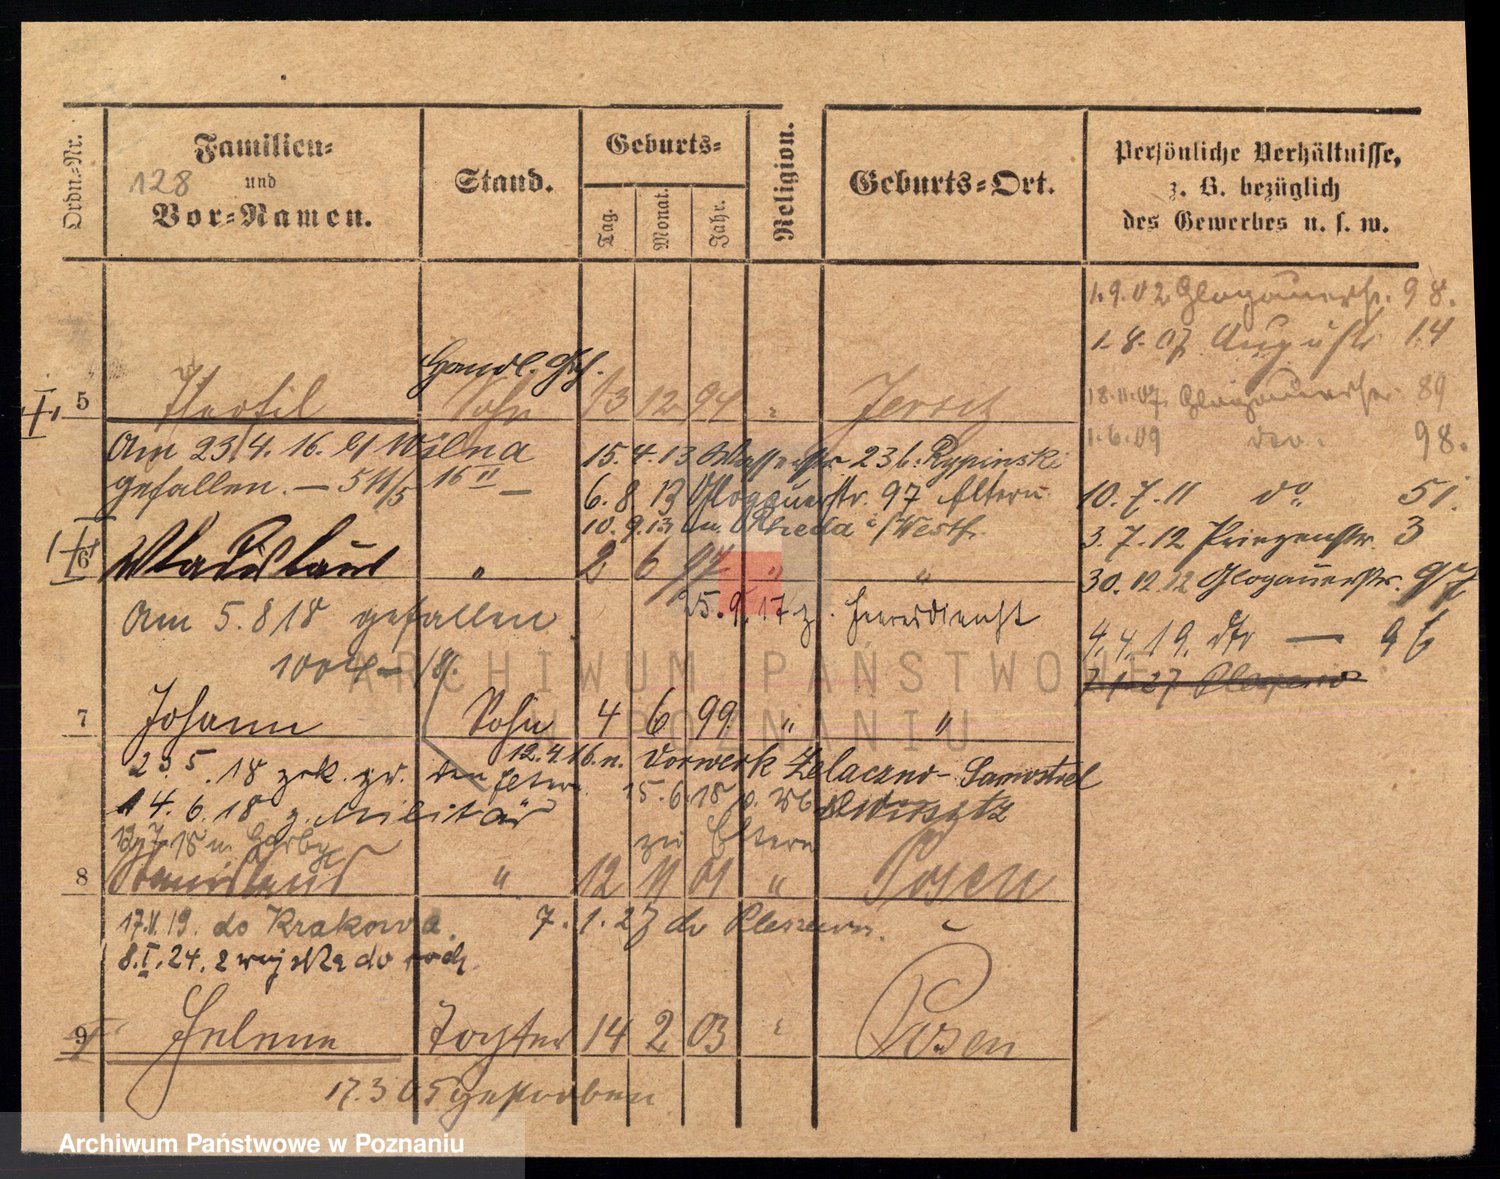 Ordn.-Nr.
Familien-
und
Vor-Namen.
128
Stand.
Geburts-
Tag.
Monat.
Jahr.
Religion.
Geburts-Ort.
Persönliche Verhältnisse,
z. B. bezüglich
des Gewerbes u. s. w.
1.9.02 Glogauerstr. 98.
1.8.07 Auguststr. 14
18.11.07. Glogauerstr. 89
1.6.09 98.
10.7.11 do 51.
3.7.12 Prinzenstr. 3
30.12.12 Glogauerstr. 97
4.4.19. 96
7.1.27
Handl. Geh.
5 Theofil Sohn 13 12 94 " Jersitz
Am 23.4.16. Wilna
gefallen. — 511/5 16 II —
15.4.13 Wasserstr. 23 b. Rypinski
6.8.13 Glogauerstr. 97 Eltern
10.9.13 n. Rheda i/Westf.
6 Wladislaus " 2 6 97 " "
25.9.17 z. Heeresdienst
Am 5.8.18 gefallen
1004 — /18.
7 Johann Sohn 4 6 99 " "
12.4.16. n. Vorwerk Zelaczno - Samostrel
2.5.18 zrk. zu den Eltern.
14.6.18 z. Militär
15.6.18
zu Eltern
8 Stanislaus " 12 11 01 " Posen
17.II.19. do Krakowa.
7.1.27 do Pleszewa.
8.I.24. z wojska do rodz.
9 Helene Tochter 14 2 03 " Posen
17.3.05 gestorben
ARCHIWUM PAŃSTWOWE
W POZNANIU
Archiwum Państwowe w Poznaniu